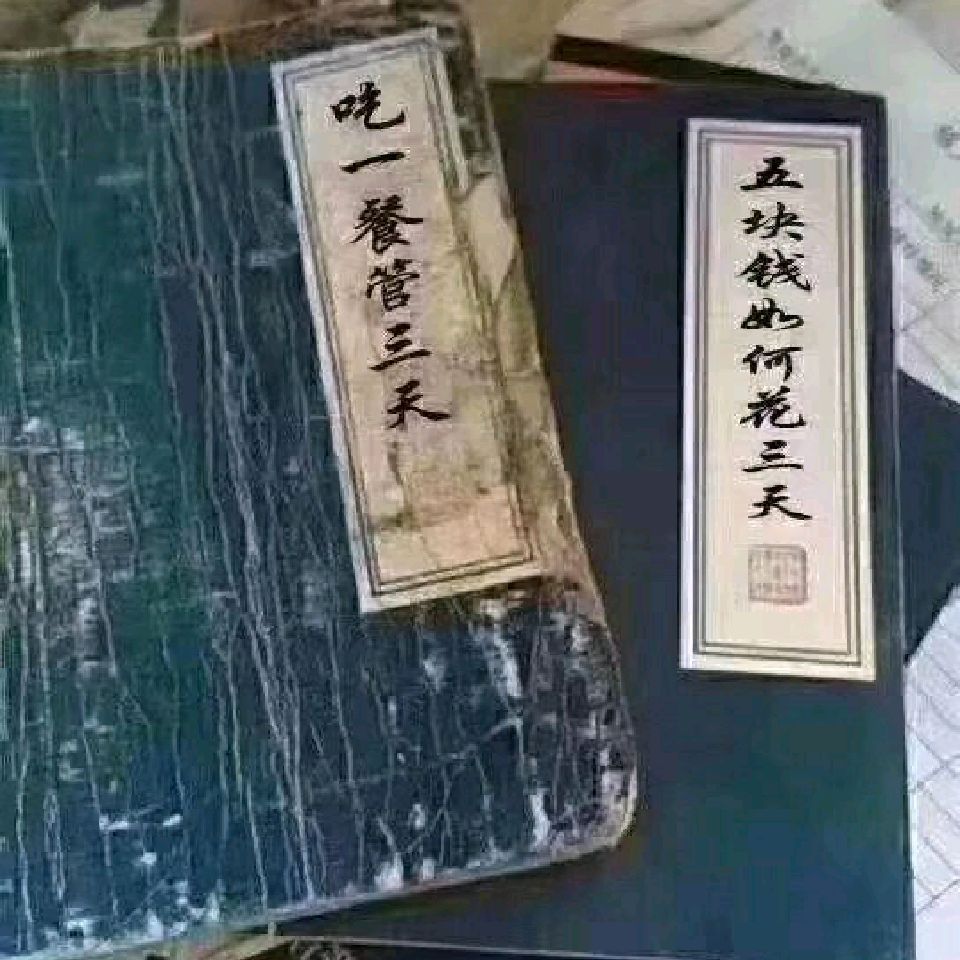 吃一餐管三天
五块钱如何花三天